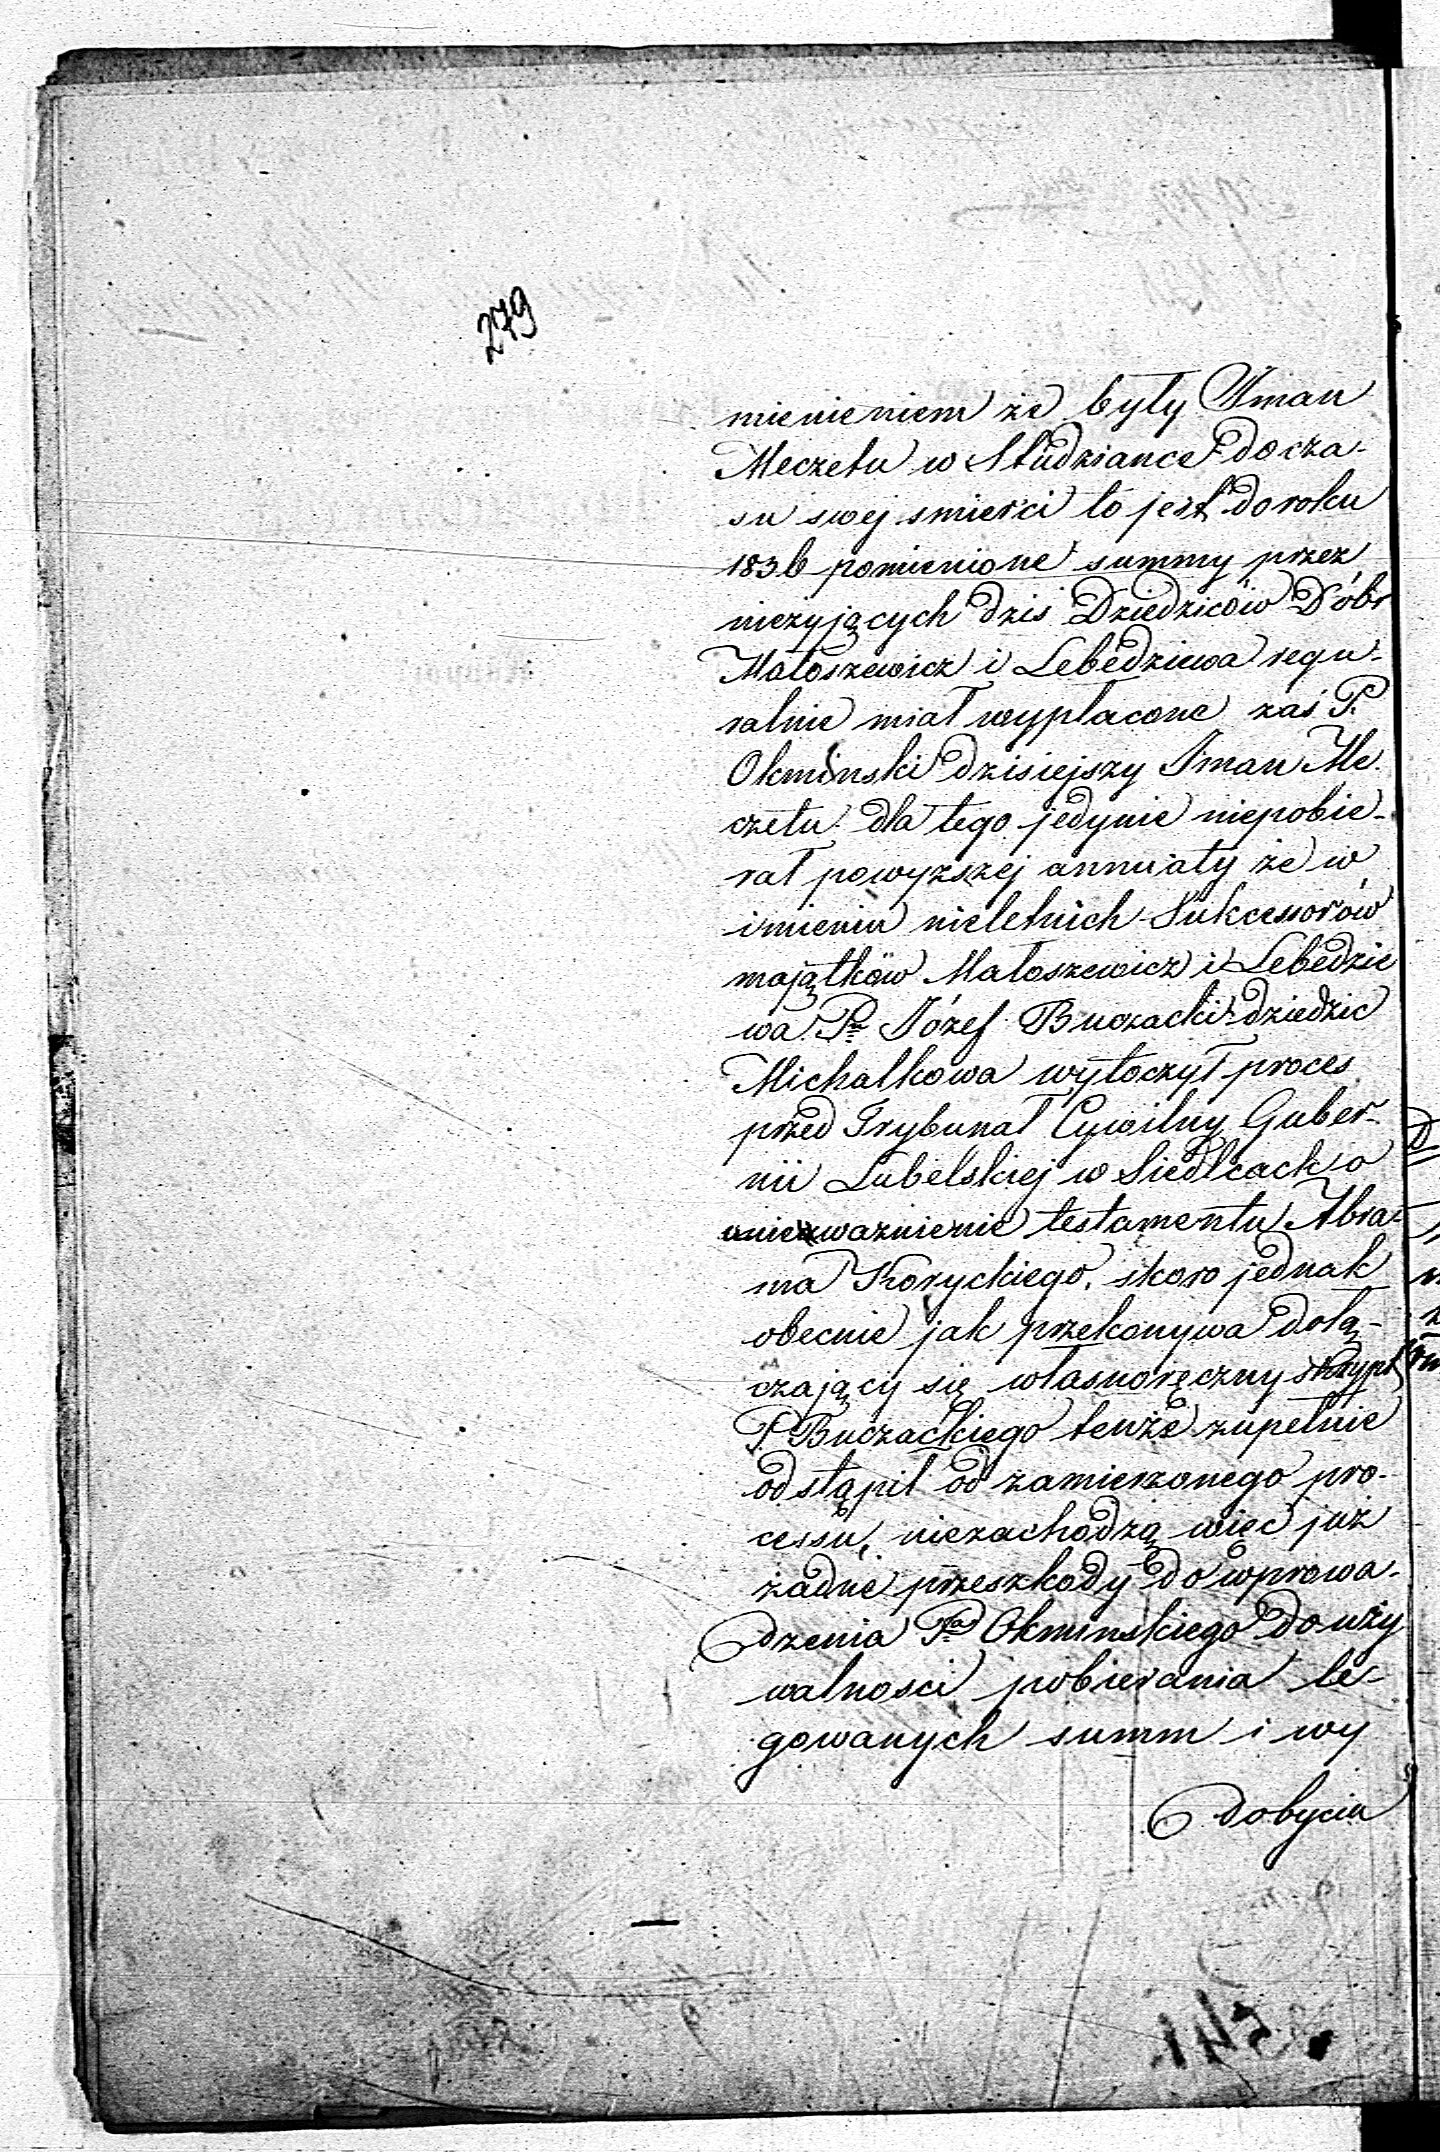 279
mienieniem że były Iman
Meczetu w Studziance do cza-
su swej smierci to jest do roku
1836 pomienione summy przez
nieżyjących dziś Dziedziców Dóbr
Małoszewicz i Lebedziewa regu-
ralnie miał wypłacone zaś P.
Okminski dzisiejszy Iman Me
czetu dla tego jedynie niepobie-
rał powyższej annuaty że w
imieniu nieletnich Sukcessorów
majątków Małoszewicz i Lebedzie
wa Pn Józef Buczacki dziedzic
Michalkowa wytoczył proces
przed Trybunał Cywilny Guber-
nii Lubelskiej w Siedlcach o
unieważnienie testamentu Abra-
ma Koryckiego, skoro jednak
obecnie jak przekonywa dołą-
czający się własnoręczny skrypt
P. Buczackiego tenże zupełnie
odstąpił od zamierzonego pro-
cessu, niezachodzą więc już
żadne przeszkody do wprowa-
dzenia Pa Okminskiego do uży
walnosci pobierania le-
gowanych summ i wy
dobycia